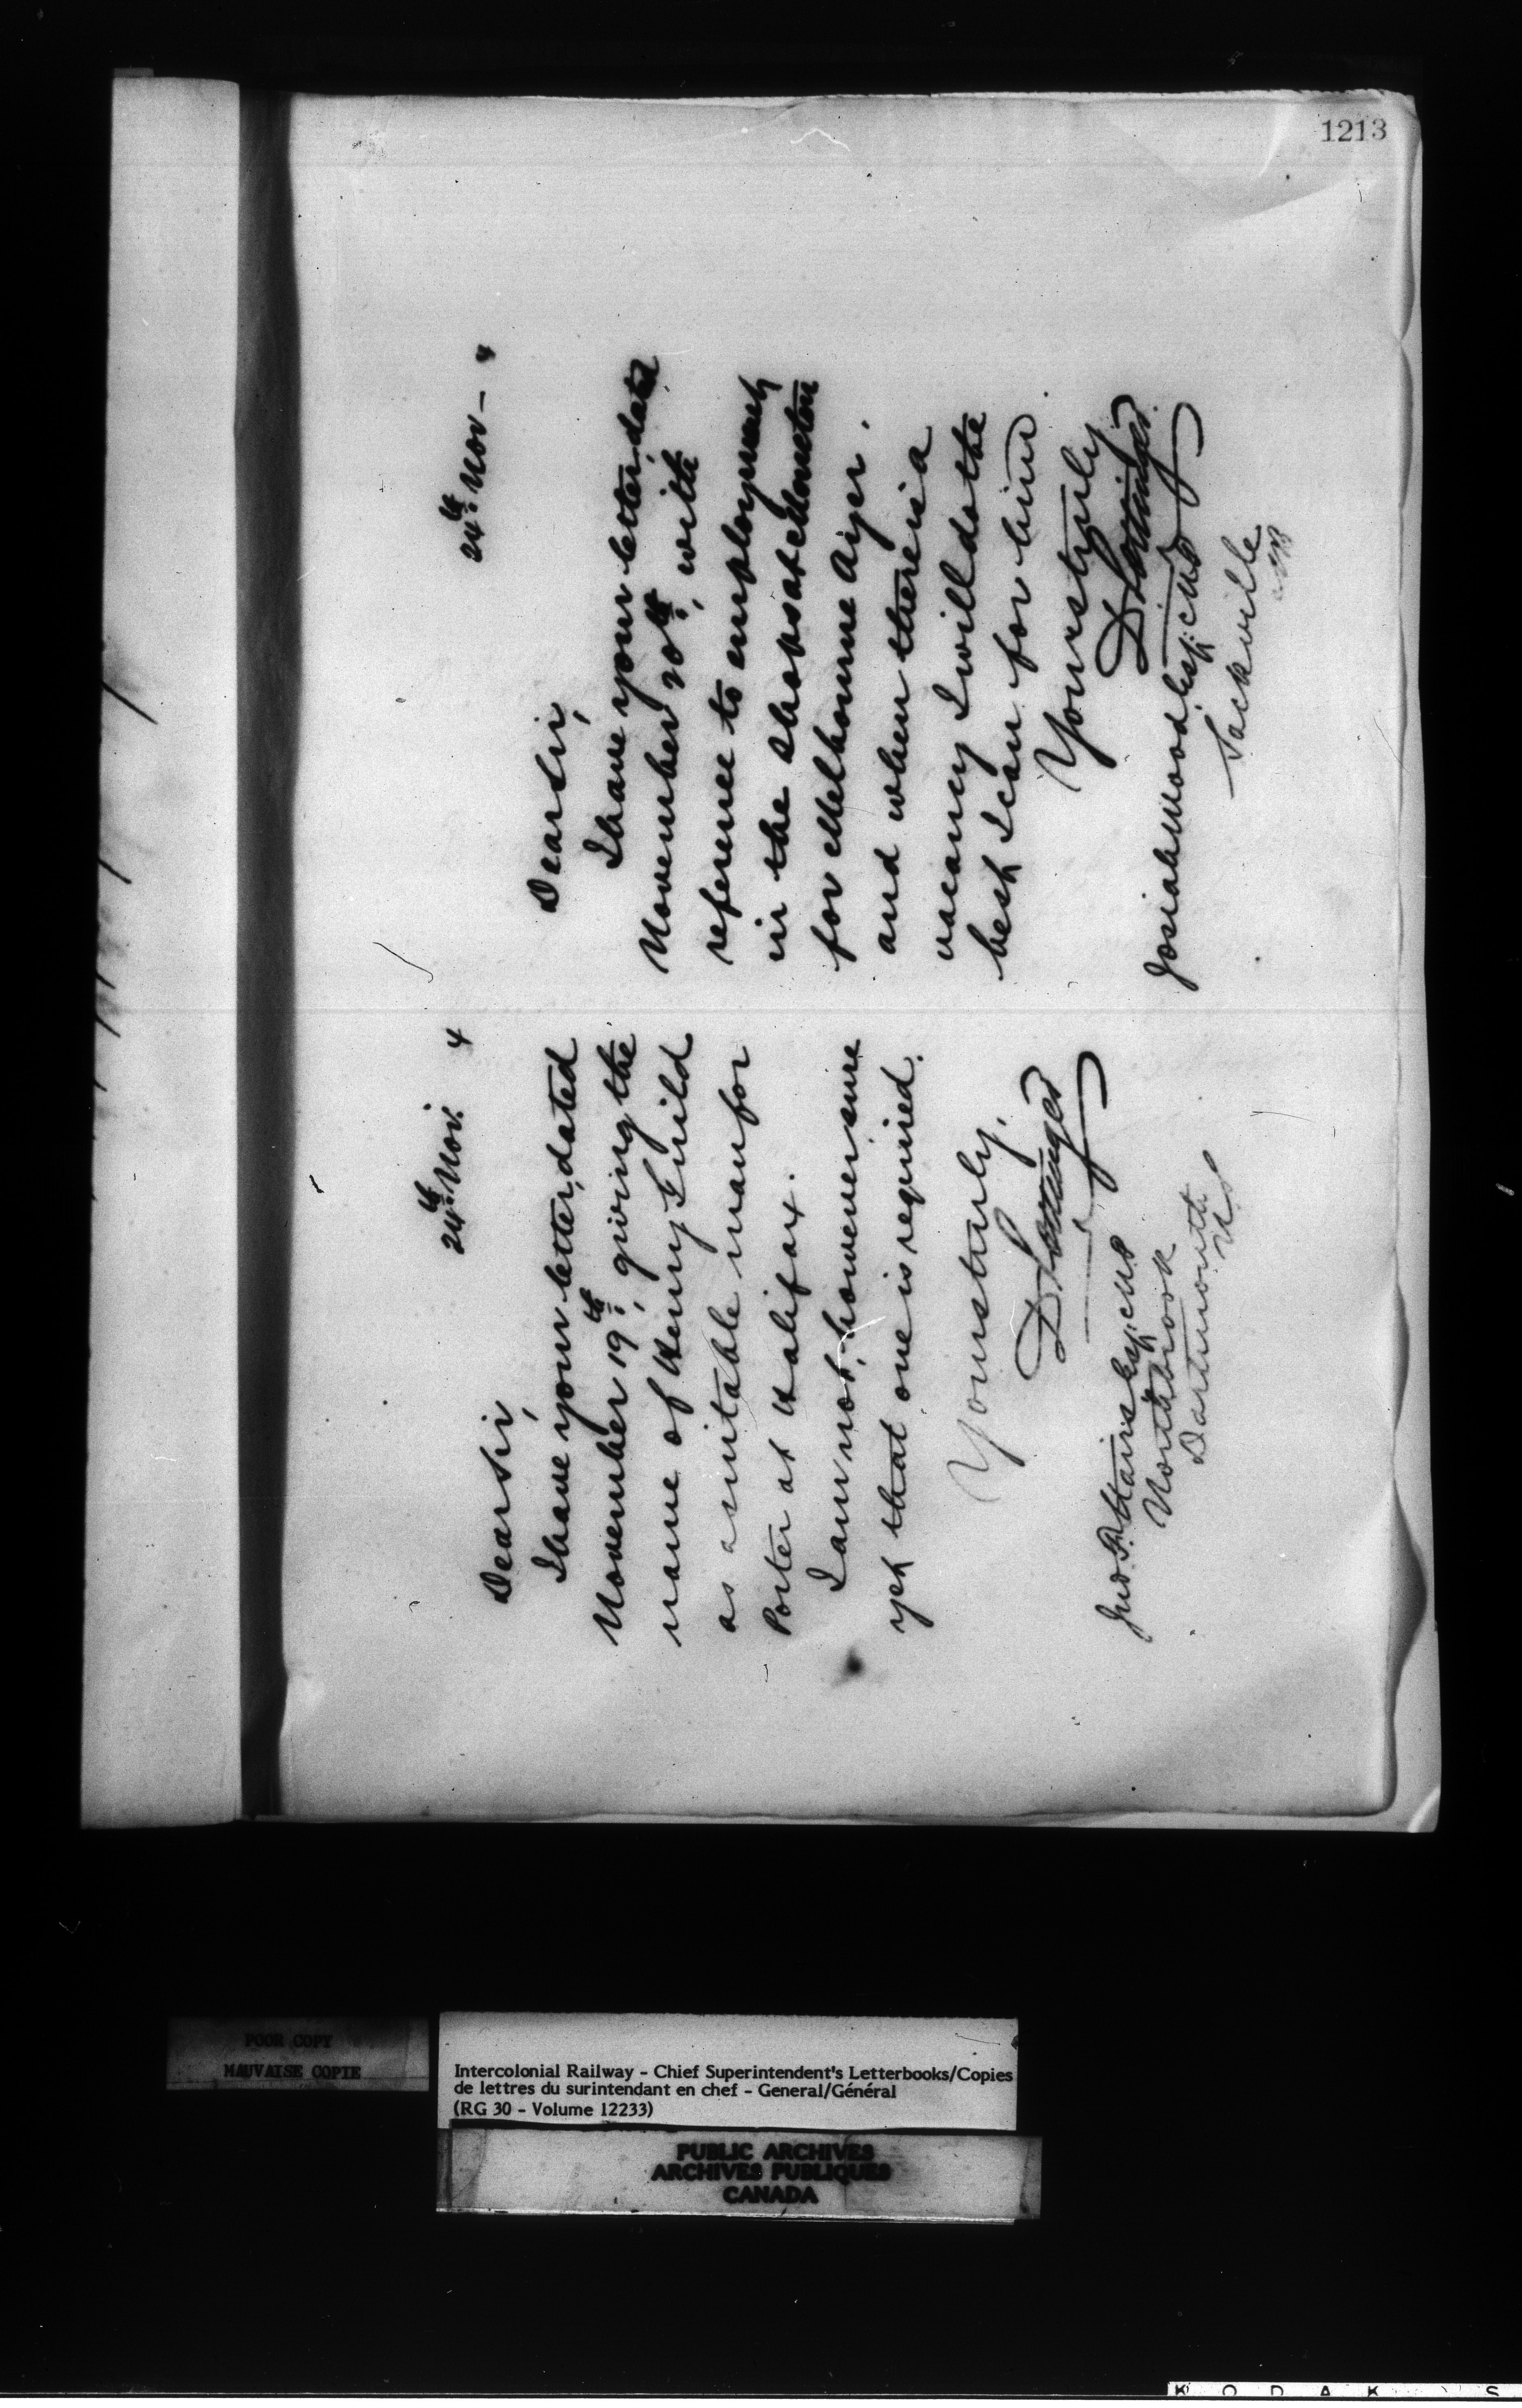 1213
24th Nov. 4
Dear Sir,
I have your letter, dated
November 19th, giving the
name of Henry Guild
as a suitable man for
Porter at Halifax.
I am not, however, sure
yet that one is required.
Yours truly,
D Pottinger
Jno. F. Stairs Esq. M.P.
Northbrook
Dartmouth
N.S.
24th Nov - 4
Dear Sir,
I have your letter, dated
November 20th, with
reference to employment
in the shops at Moncton
for Melbourne Ayer.
and when there is a
vacancy I will do the
best I can for him.
Yours truly,
D Pottinger
Josiah Wood Esq. M.P.
Sackville
NB
POOR COPY
MAUVAISE COPIE
Intercolonial Railway - Chief Superintendent's Letterbooks/Copies
de lettres du surintendant en chef - General/Général
(RG 30 - Volume 12233)
PUBLIC ARCHIVES
ARCHIVES PUBLIQUES
CANADA
KODAK S